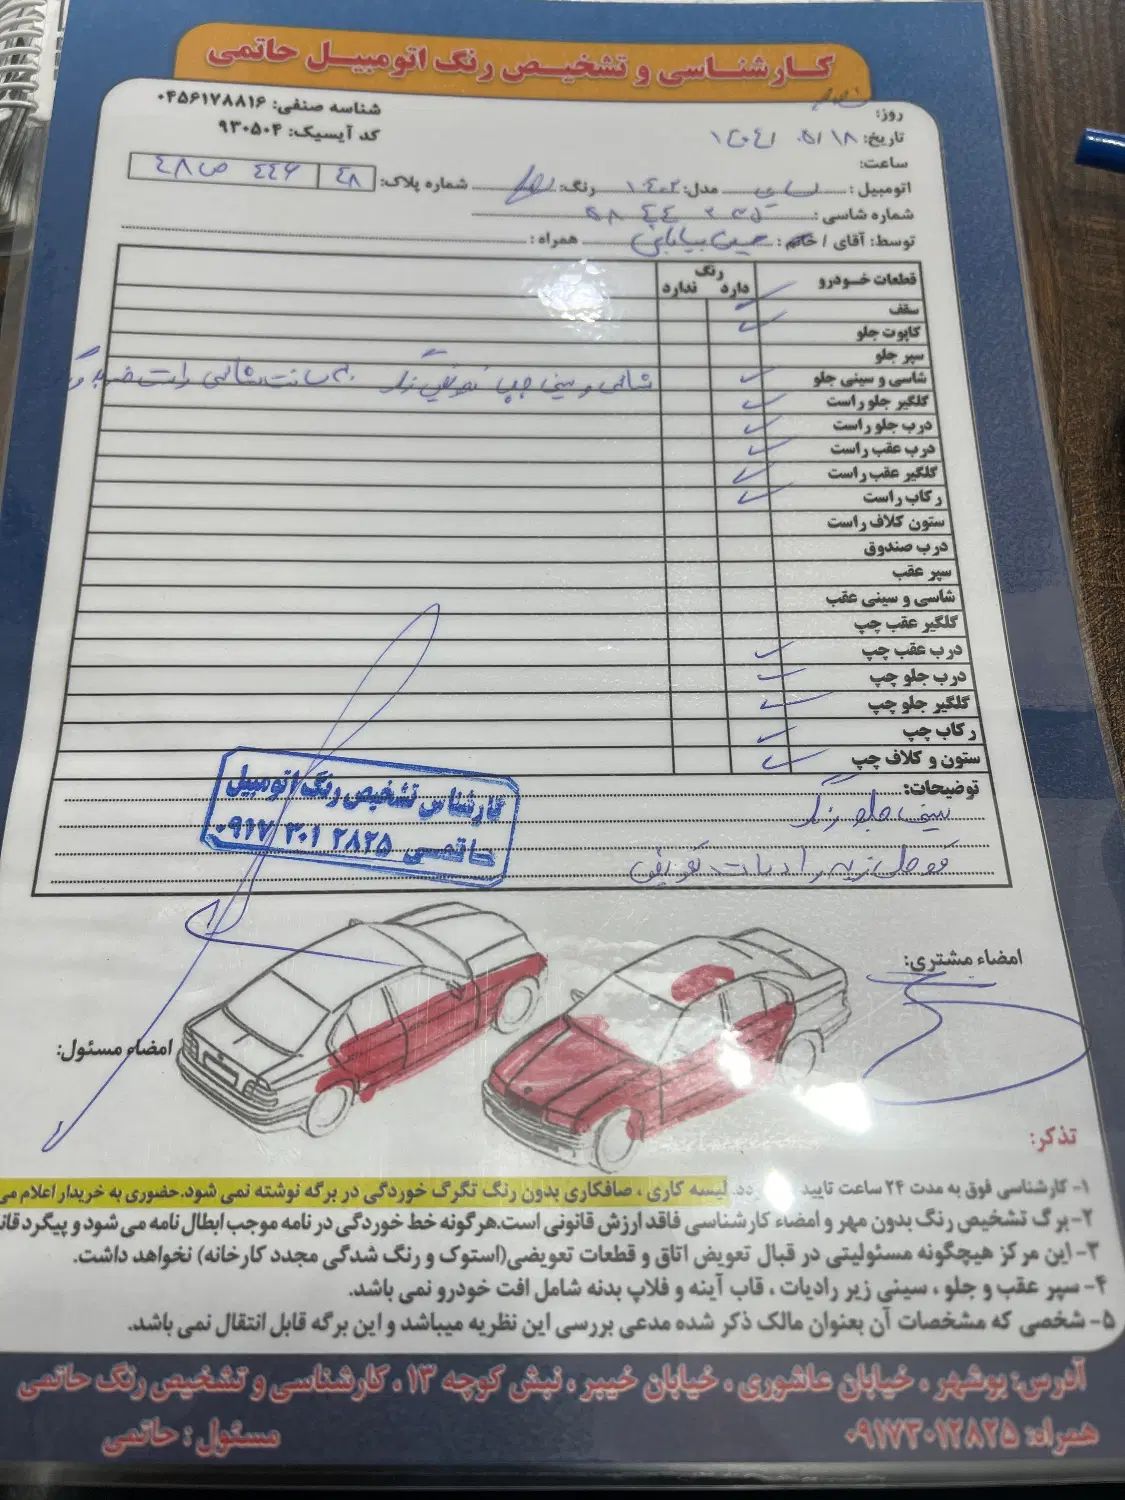 کارشناسی و تشخیص رنگ اتومبیل حاتمی
شناسه صنفی: ۰۴۵۶۱۷۸۸۱۶
کد آیسیک: ۹۳۰۵۰۴
روز:
تاریخ:
ساعت:
اتومبیل: مدل: ۱۴۰۲ رنگ: شماره پلاک: ۴۸ ۴۴۶ ص ۴۸
شماره شاسی:
توسط: آقای / خانم: حسین بیابانی همراه:
قطعات خودرو رنگ دارد ندارد
سقف
کاپوت جلو
سپر جلو
شاسی و سینی جلو
گلگیر جلو راست
درب جلو راست
درب عقب راست
گلگیر عقب راست
رکاب راست
ستون کلاف راست
درب صندوق
سپر عقب
شاسی و سینی عقب
گلگیر عقب چپ
درب عقب چپ
درب جلو چپ
گلگیر جلو چپ
رکاب چپ
ستون و کلاف چپ
توضیحات:
سینی جلو رنگ
زیر رادیات تعویض
کارشناس تشخیص رنگ اتومبیل
حاتمی ۰۹۱۷ ۳۰۱ ۲۸۲۵
امضاء مشتری:
امضاء مسئول:
تذکر:
۱- کارشناسی فوق به مدت ۲۴ ساعت تایید لیسه کاری ، صافکاری بدون رنگ تگرگ خوردگی در برگه نوشته نمی شود.حضوری به خریدار اعلام می
۲-برگ تشخیص رنگ بدون مهر و امضاء کارشناسی فاقد ارزش قانونی است.هرگونه خط خوردگی در نامه موجب ابطال نامه می شود و پیگرد
۳-این مرکز هیچگونه مسئولیتی در قبال تعویض اتاق و قطعات تعویضی(استوک و رنگ شدگی مجدد کارخانه) نخواهد داشت.
۴- سپر عقب و جلو ، سینی زیر رادیات ، قاب آینه و فلاپ بدنه شامل افت خودرو نمی باشد.
۵- شخصی که مشخصات آن بعنوان مالک ذکر شده مدعی بررسی این نظریه میباشد و این برگه قابل انتقال نمی باشد.
آدرس: بوشهر ، خیابان عاشوری ، خیابان خیبر ، نبش کوچه ۱۳ ، کارشناسی و تشخیص رنگ حاتمی
همراه: ۰۹۱۷۳۰۱۲۸۲۵ مسئول : حاتمی